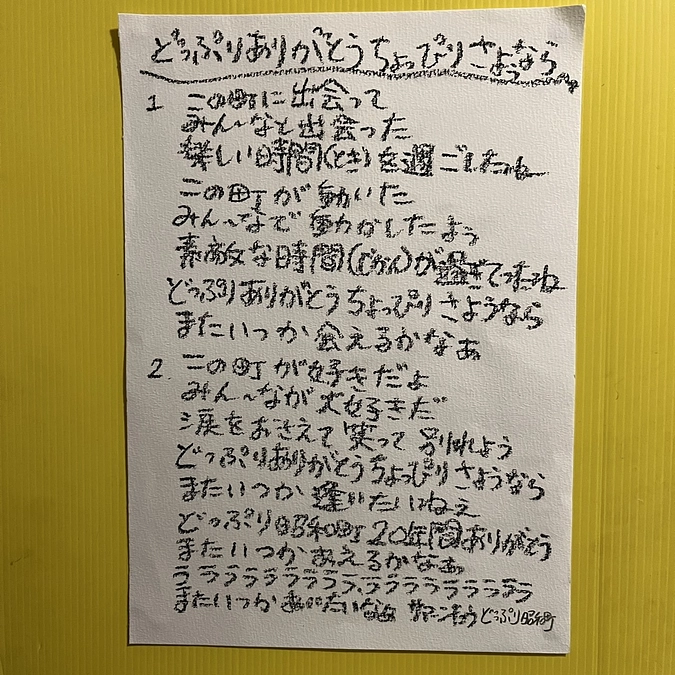 どっぷりありがとうちょっぴりさようなら
1 この町に出会って
みん〜なと出会った
楽しい時間(とき)を過ごしたね
この町が動いた
みん〜なで動かしたよぅ
素敵な時間(じかん)が過ぎてったね
どっぷりありがとうちょっぴりさようなら
またいつか会えるかなぁ
2. この町が好きだよ
みん〜なが大好きだ
涙をおさえて笑って別れよう
どっぷりありがとうちょっぴりさようなら
またいつか逢いたいねぇ
どっぷり昭和町20年間ありがとう
またいつかあえるかなぁ
ララララララララララララララララ
またいつかあいたいなぁ どっぷり昭和町